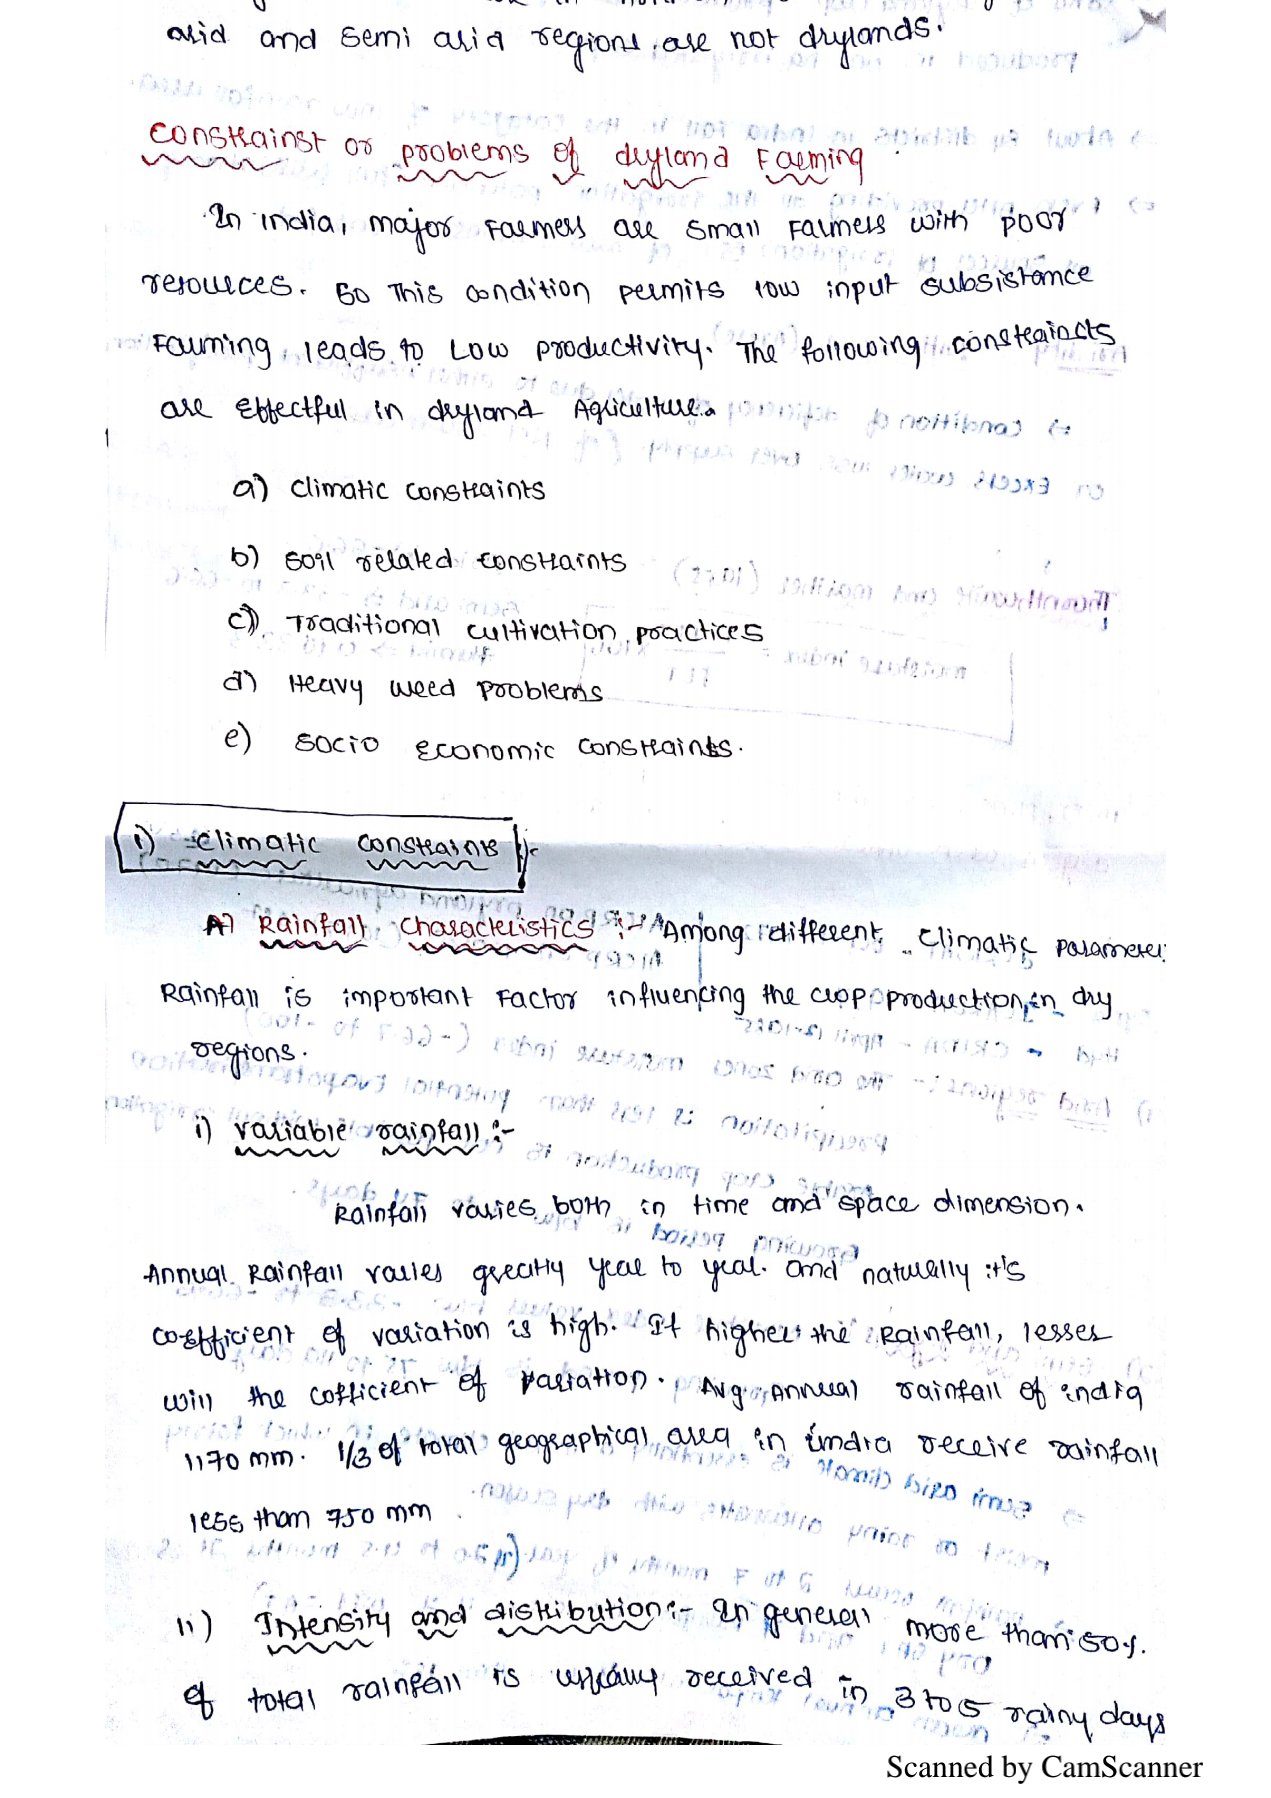 arid and semi arid regions are not drylands.
Constrainst or problems of dryland Farming
In india, major Farmers are small Farmers with poor
resources. So This condition permits low input subsistance
Farming, leads to Low productivity. The following constraincts
are Effectful in dryland Agriculture.
a) climatic constraints
b) soil related constraints
c) Traditional cultivation practices
d) Heavy weed problems
e) socio economic constraints.
i) climatic constraints :-
A) Rainfall characteristics :- Among different climatic parameter
Rainfall is important Factor influencing the crop production in dry
regions.
i) variable rainfall :-
Rainfall varies both in time and space dimension.
Annual Rainfall varies greatly year to year. and naturally it's
co-efficient of variation is high. It higher the Rainfall, lesser
will the cofficient of variation. Avg Annual rainfall of india
1170 mm. 1/3 of total geographical area in india receive rainfall
less than 750 mm
ii) Intensity and distribution :- In general more than 50%.
of total rainfall is usually received in 3 to 5 rainy days
Scanned by CamScanner